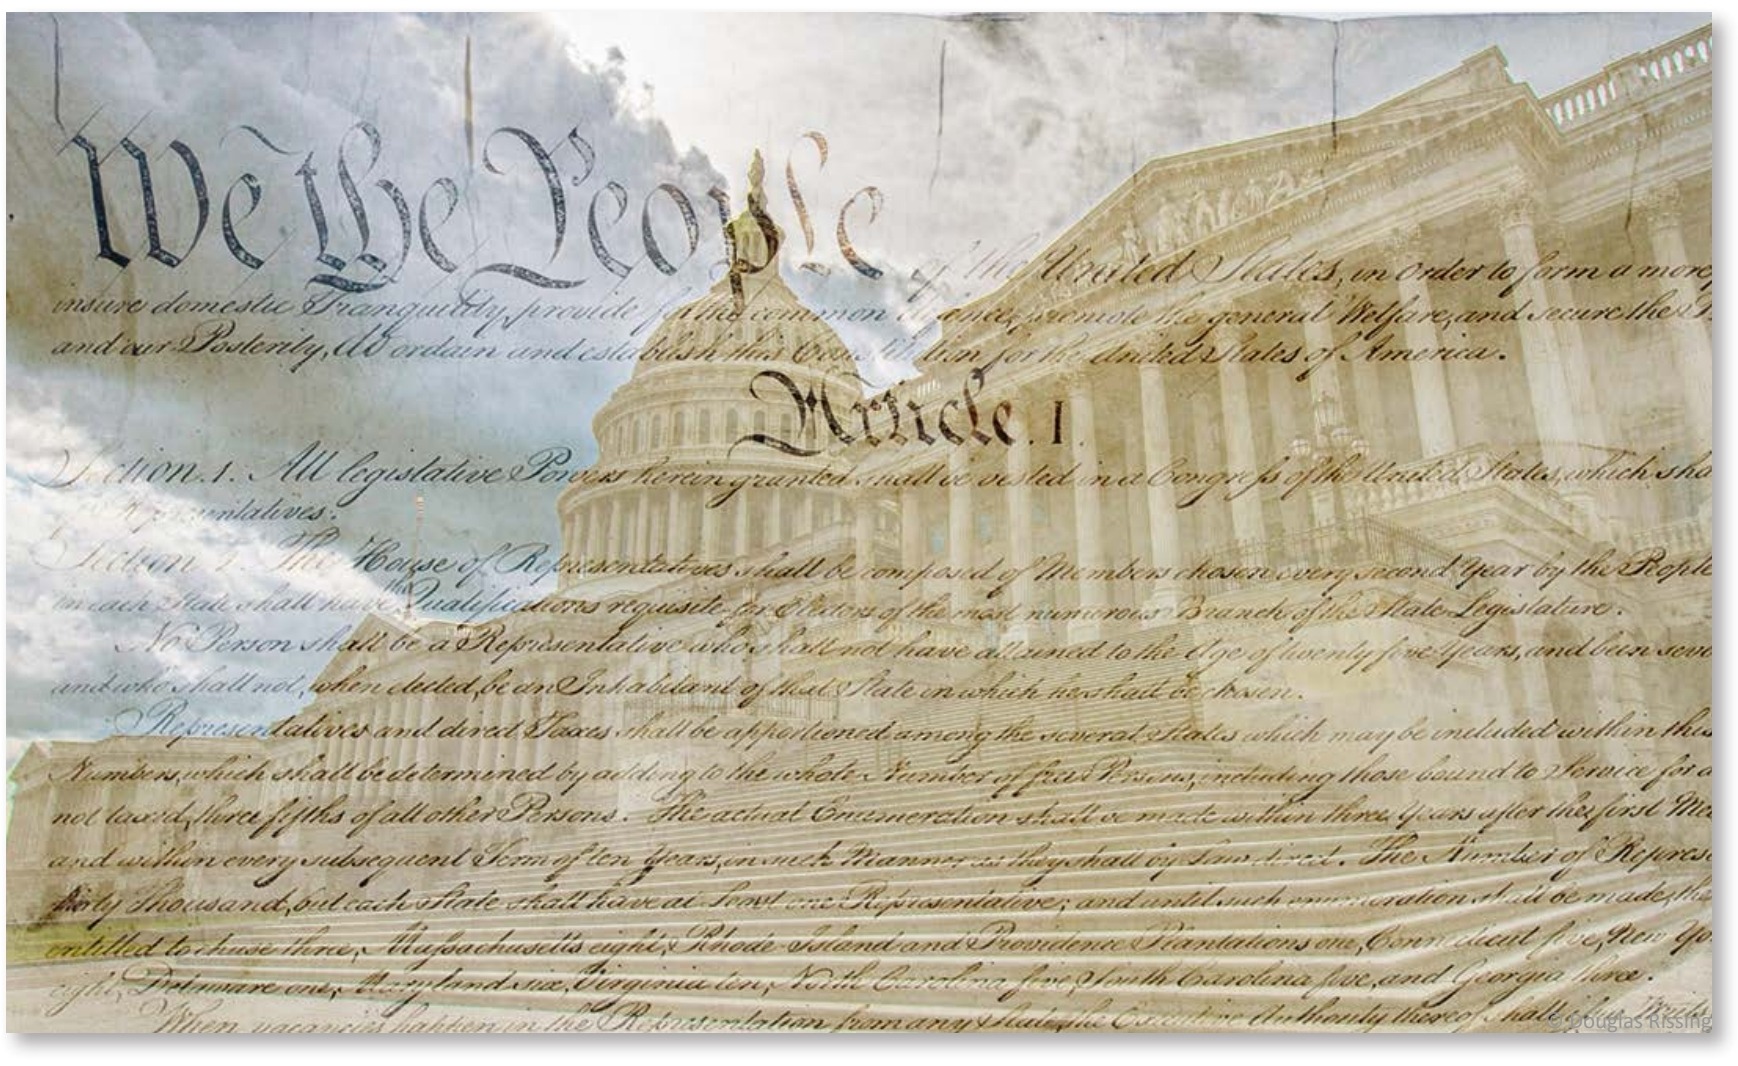 We the People of the United States, in Order to form a more
insure domestic Tranquility, provide for the common defence, promote the general Welfare, and secure the
and our Posterity, do ordain and establish this Constitution for the United States of America.
Article. I.
Section. 1. All legislative Powers herein granted shall be vested in a Congress of the United States, which sha
Representatives.
Section. 2. The House of Representatives shall be composed of Members chosen every second Year by the People
in each State shall have Qualifications requisite for Electors of the most numerous Branch of the State Legislature.
No Person shall be a Representative who shall not have attained to the Age of twenty five Years, and been seve
and who shall not, when elected, be an Inhabitant of that State in which he shall be chosen.
Representatives and direct Taxes shall be apportioned among the several States which may be included within this
Numbers, which shall be determined by adding to the whole Number of free Persons, including those bound to Service for a
not taxed, three fifths of all other Persons. The actual Enumeration shall be made within three Years after the first Mee
and within every subsequent Term of ten Years, in such Manner as they shall by Law direct. The Number of Represe
thirty Thousand, but each State shall have at Least one Representative; and until such enumeration shall be made, the
entitled to chuse three, Massachusetts eight, Rhode-Island and Providence Plantations one, Connecticut five, New Yo
eight, Delaware one, Maryland six, Virginia ten, North Carolina five, South Carolina five, and Georgia three.
When vacancies happen in the Representation from any State, the Executive Authority thereof shall issue Writs
© Douglas Rissing